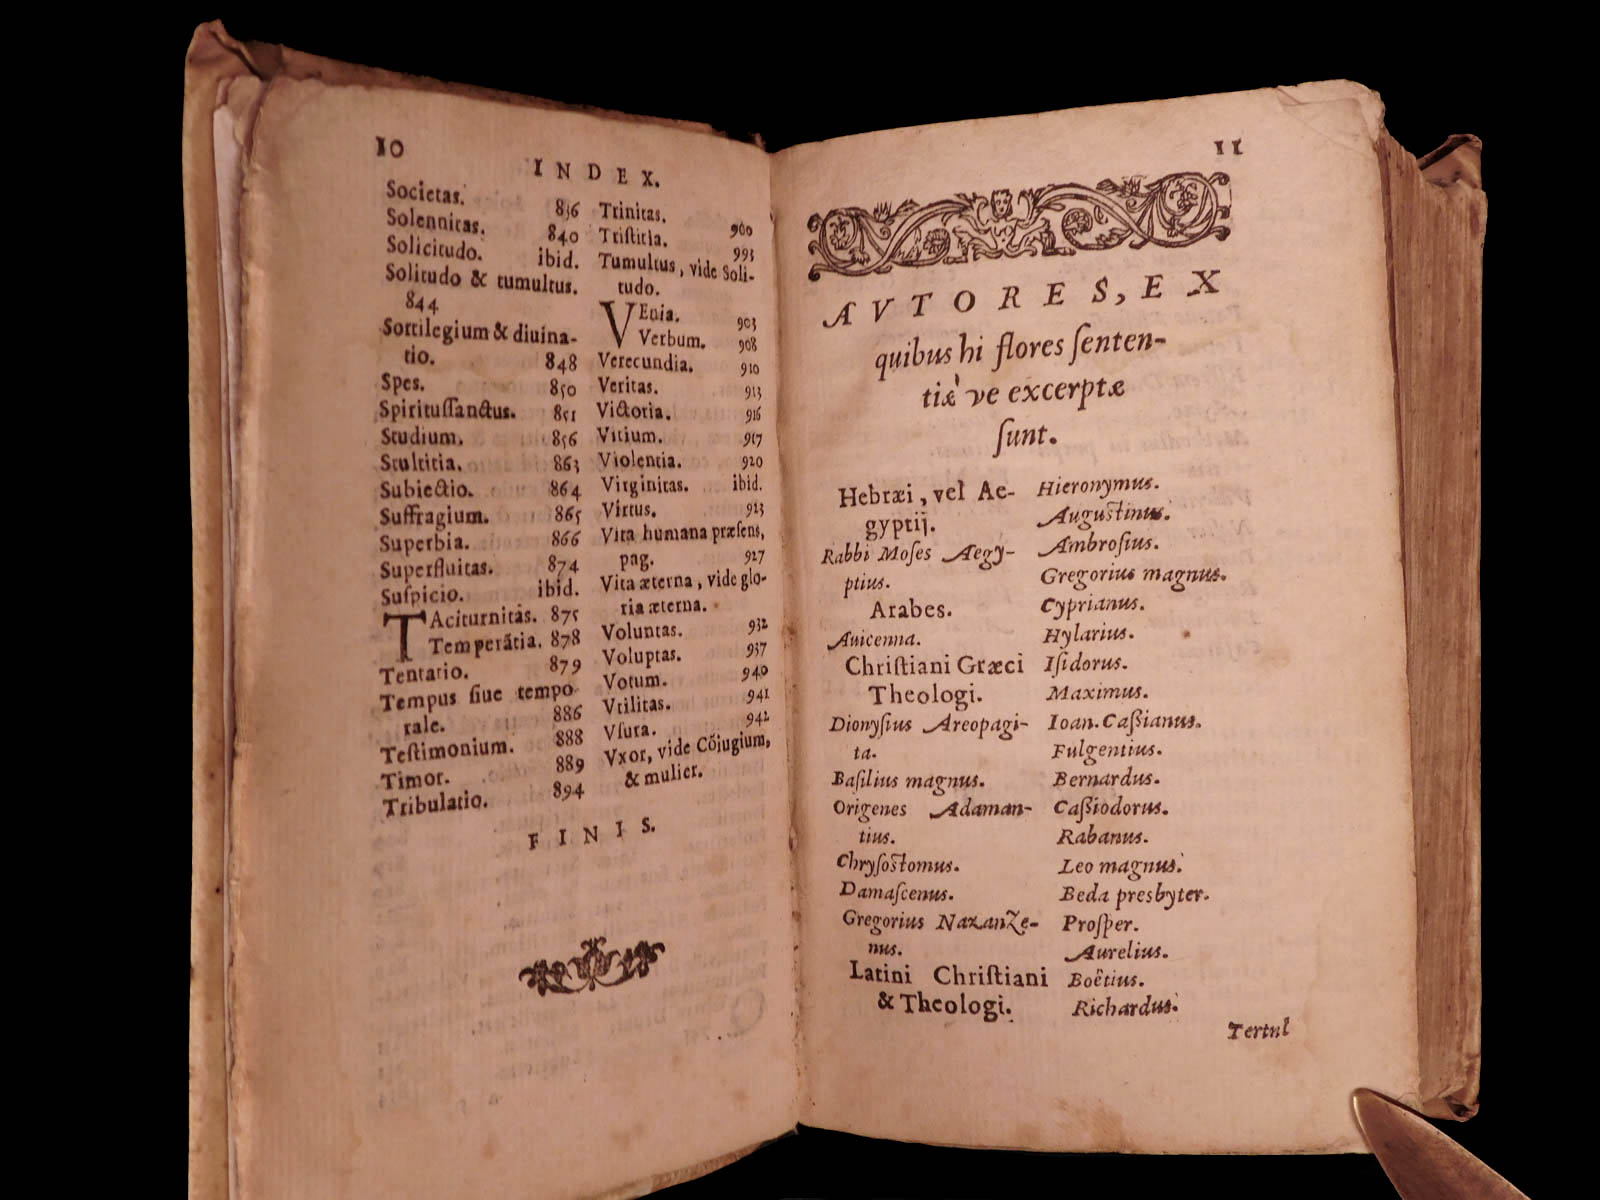 10
INDEX.
Societas. 836
Solennitas. 840
Solicitudo. ibid.
Solitudo & tumultus.
844
Sortilegium & diuina-
tio. 848
Spes. 850
Spiritussanctus. 851
Studium. 856
Stultitia. 863
Subiectio. 864
Suffragium. 865
Superbia. 866
Superfluitas. 874
Suspicio. ibid.
TAciturnitas. 875
Temperãtia. 878
Tentatio. 879
Tempus siue tempo
rale. 886
Testimonium. 888
Timor. 889
Tribulatio. 894
Trinitas. 900
Tristitia. 993
Tumultus, vide Soli-
tudo.
VEnia. 903
Verbum. 908
Verecundia. 910
Veritas. 913
Victoria. 916
Vitium. 917
Violentia. 920
Virginitas. ibid.
Virtus. 923
Vita humana præsens,
pag. 927
Vita æterna, vide glo-
ria æterna.
Voluntas. 932
Voluptas. 937
Votum. 940
Vtilitas. 941
Vsura. 942
Vxor, vide Cõjugium,
& mulier.
FINIS.
11
AVTORES, EX
quibus hi flores senten-
tiæ ve excerptæ
sunt.
Hebræi, vel Ae-
gyptij.
Rabbi Moses Aegy-
ptius.
Arabes.
Auicenna.
Christiani Græci
Theologi.
Dionysius Areopagi-
ta.
Basilius magnus.
Origenes Adaman-
tius.
Chrysostomus.
Damascenus.
Gregorius Nazanze-
nus.
Latini Christiani
& Theologi.
Hieronymus.
Augustinus.
Ambrosius.
Gregorius magnus.
Cyprianus.
Hylarius.
Isidorus.
Maximus.
Ioan. Cassianus.
Fulgentius.
Bernardus.
Cassiodorus.
Rabanus.
Leo magnus.
Beda presbyter.
Prosper.
Aurelius.
Boëtius.
Richardus.
Tertul